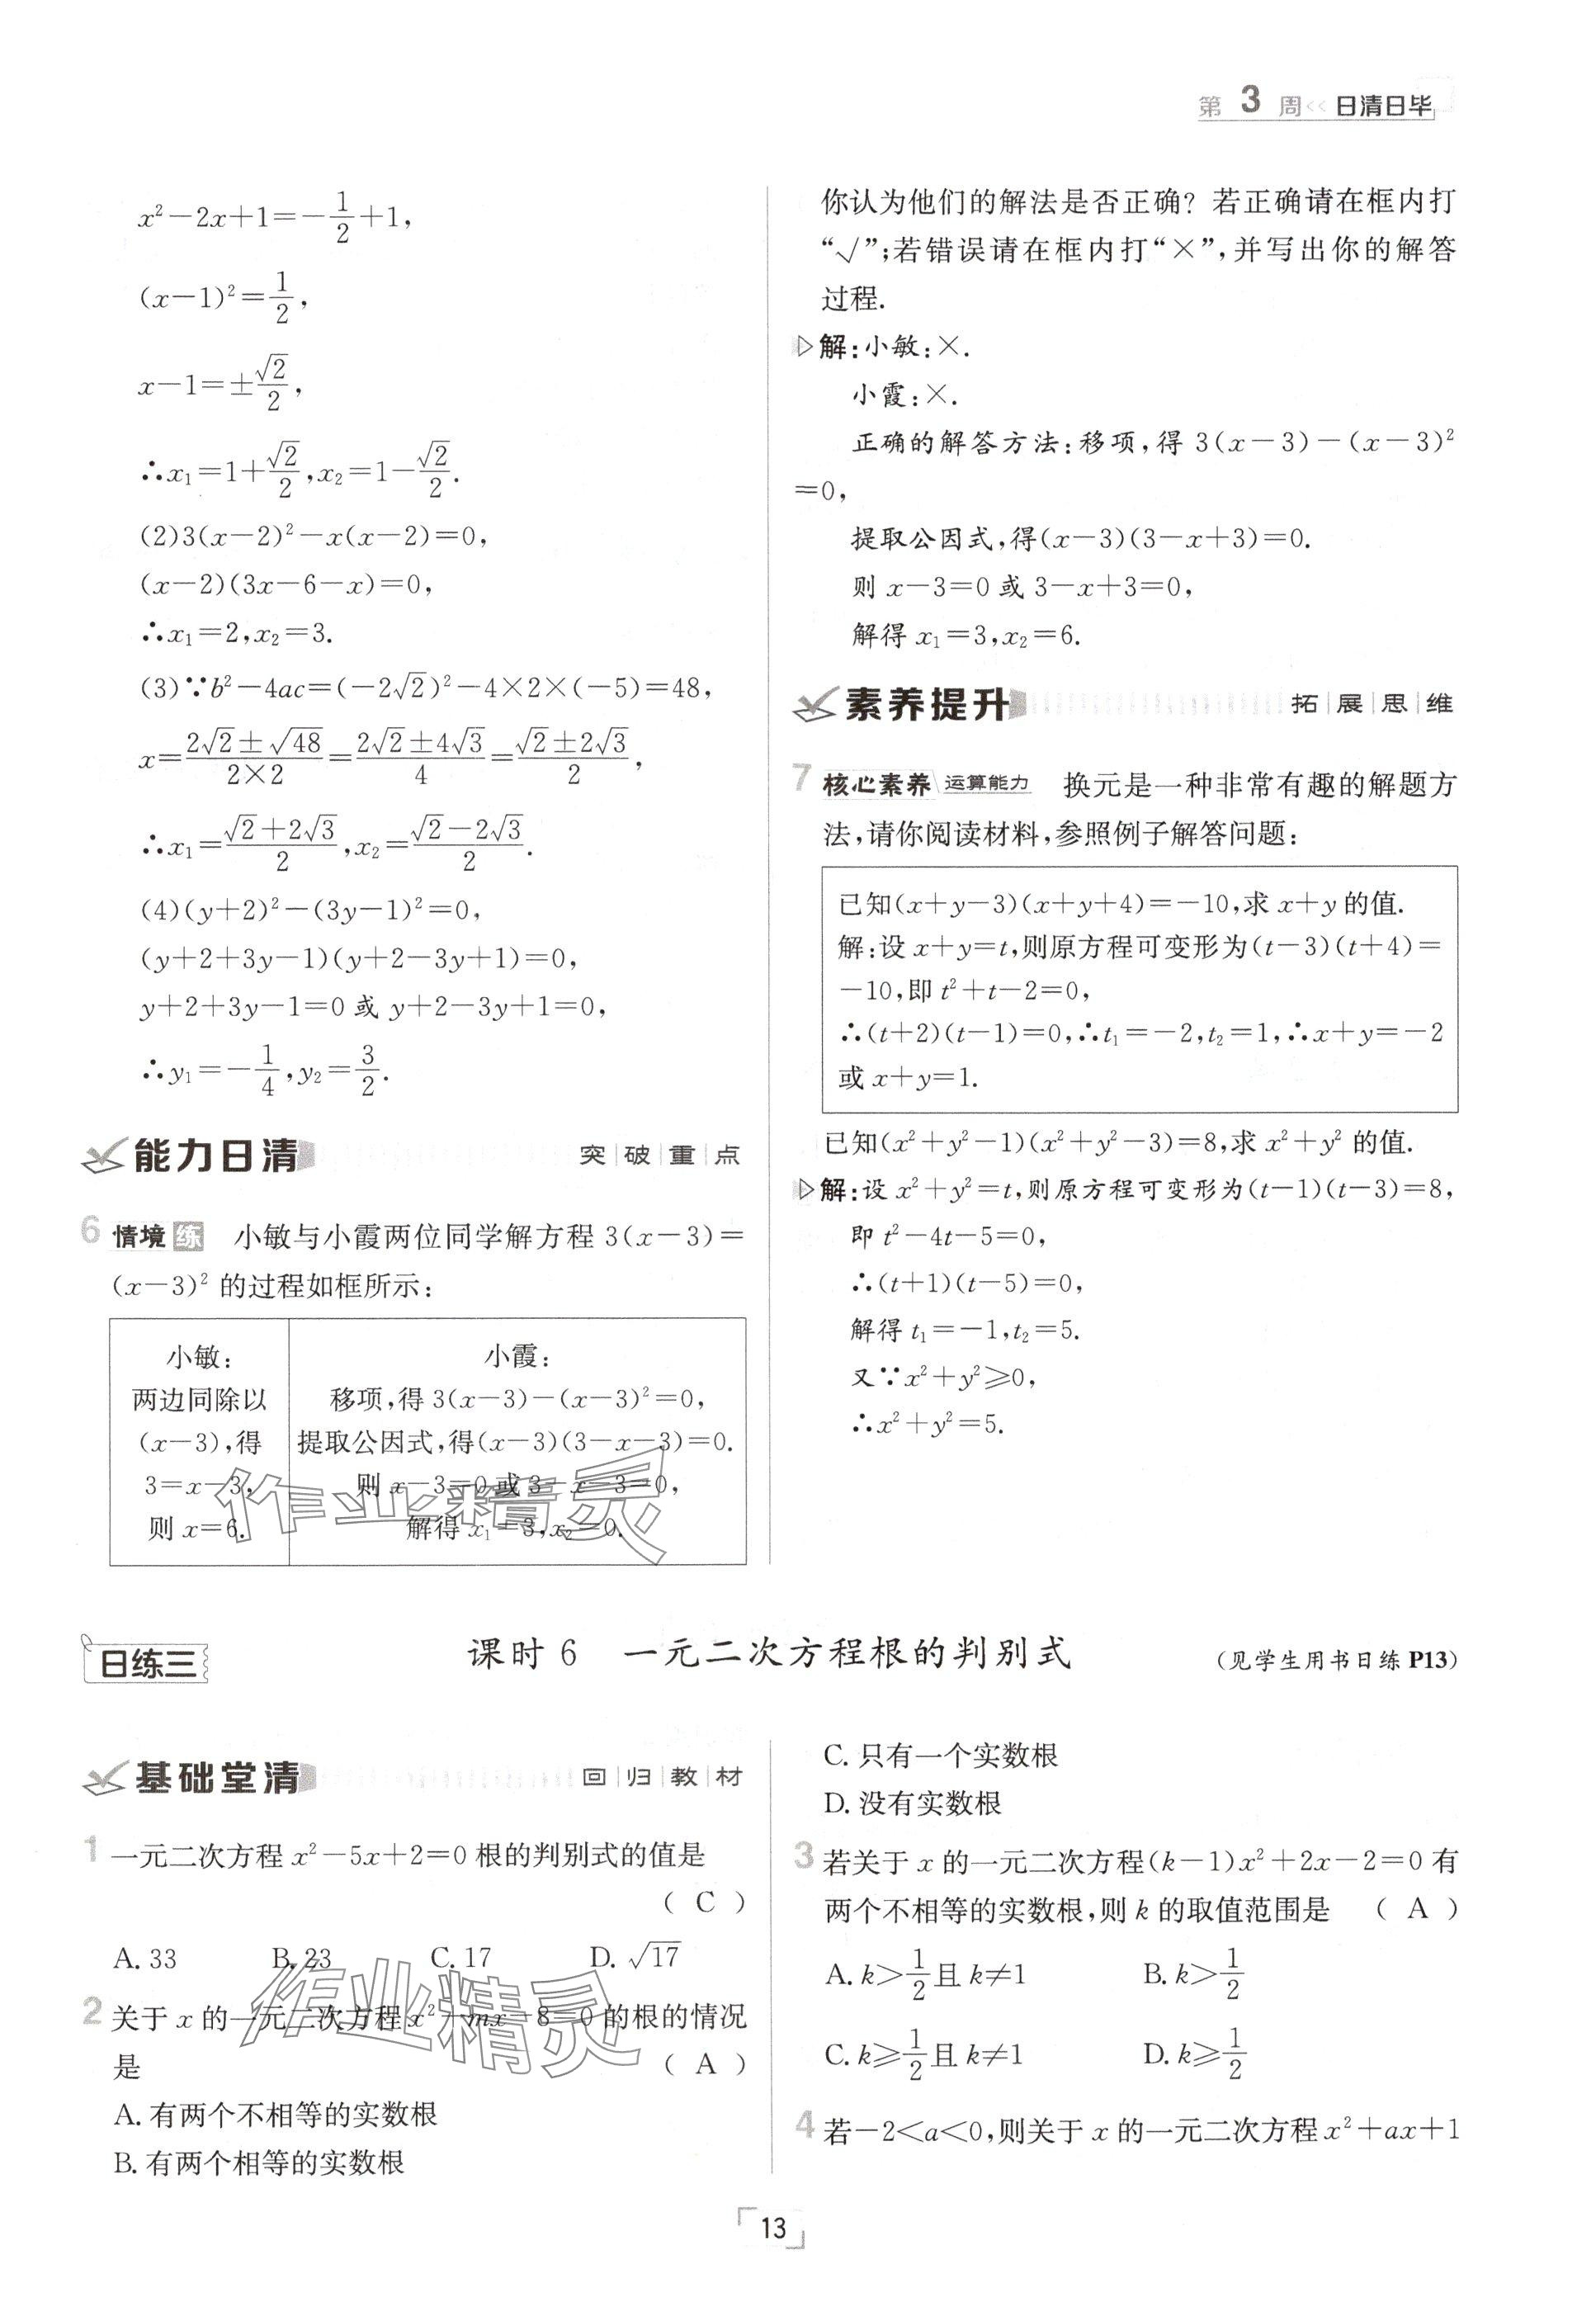 第 3 周<< 日清日毕
x²-2x+1=-\frac{1}{2}+1,
(x-1)²=\frac{1}{2},
x-1=±\frac{√2}{2},
∴x₁=1+\frac{√2}{2},x₂=1-\frac{√2}{2}.
(2)3(x-2)²-x(x-2)=0,
(x-2)(3x-6-x)=0,
∴x₁=2,x₂=3.
(3)∵b²-4ac=(-2√2)²-4×2×(-5)=48,
x=\frac{2√2±√48}{2×2}=\frac{2√2±4√3}{4}=\frac{√2±2√3}{2},
∴x₁=\frac{√2+2√3}{2},x₂=\frac{√2-2√3}{2}.
(4)(y+2)²-(3y-1)²=0,
(y+2+3y-1)(y+2-3y+1)=0,
y+2+3y-1=0或y+2-3y+1=0,
∴y₁=-\frac{1}{4},y₂=\frac{3}{2}.
能力日清 突|破|重|点
6 情境练 小敏与小霞两位同学解方程3(x-3)=
(x-3)²的过程如框所示:
小敏:
两边同除以
(x-3),得
3=x-3,
则x=6.
小霞:
移项,得3(x-3)-(x-3)²=0,
提取公因式,得(x-3)(3-x-3)=0.
则x-3=0或3-x-3=0,
解得x₁=3,x₂=0.
作业精灵
你认为他们的解法是否正确?若正确请在框内打
“√”;若错误请在框内打“×”,并写出你的解答
过程.
▷解:小敏:×.
小霞:×.
正确的解答方法:移项,得3(x-3)-(x-3)²
=0,
提取公因式,得(x-3)(3-x+3)=0.
则x-3=0或3-x+3=0,
解得x₁=3,x₂=6.
素养提升 拓|展|思|维
7 核心素养 运算能力 换元是一种非常有趣的解题方
法,请你阅读材料,参照例子解答问题:
已知(x+y-3)(x+y+4)=-10,求x+y的值.
解:设x+y=t,则原方程可变形为(t-3)(t+4)=
-10,即t²+t-2=0,
∴(t+2)(t-1)=0,∴t₁=-2,t₂=1,∴x+y=-2
或x+y=1.
已知(x²+y²-1)(x²+y²-3)=8,求x²+y²的值.
▷解:设x²+y²=t,则原方程可变形为(t-1)(t-3)=8,
即t²-4t-5=0,
∴(t+1)(t-5)=0,
解得t₁=-1,t₂=5.
又∵x²+y²≥0,
∴x²+y²=5.
日练三 课时6 一元二次方程根的判别式 (见学生用书日练P13)
基础堂清 回|归|教|材
1 一元二次方程x²-5x+2=0根的判别式的值是
( C )
A.33 B.23 C.17 D.√17
2 关于x的一元二次方程x²+mx-8=0的根的情况
是 ( A )
A.有两个不相等的实数根
B.有两个相等的实数根
作业精灵
C.只有一个实数根
D.没有实数根
3 若关于x的一元二次方程(k-1)x²+2x-2=0有
两个不相等的实数根,则k的取值范围是 ( A )
A.k>\frac{1}{2}且k≠1 B.k>\frac{1}{2}
C.k≥\frac{1}{2}且k≠1 D.k≥\frac{1}{2}
4 若-2<a<0,则关于x的一元二次方程x²+ax+1
13